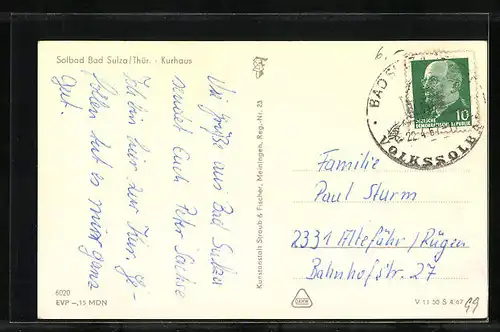 Solbad Bad Sulza/Thür. - Kurhaus
Viele Grüße aus Bad Sulza
sendet Euch Peter Sachse
Ich bin hier zur Kur. Ge-
fallen tut es mir ganz
gut.
6020
EVP –,15 MDN
Kunstanstalt Straub & Fischer, Meiningen, Reg.-Nr. 23
BAD S
22.4.6
VOLKSSOLB
DEUTSCHE
DEMOKRATISCHE REPUBLIK
10
Familie
Paul Sturm
2331 Altefähr/Rügen
Bahnhofstr. 27
V 11 50 S 4/67